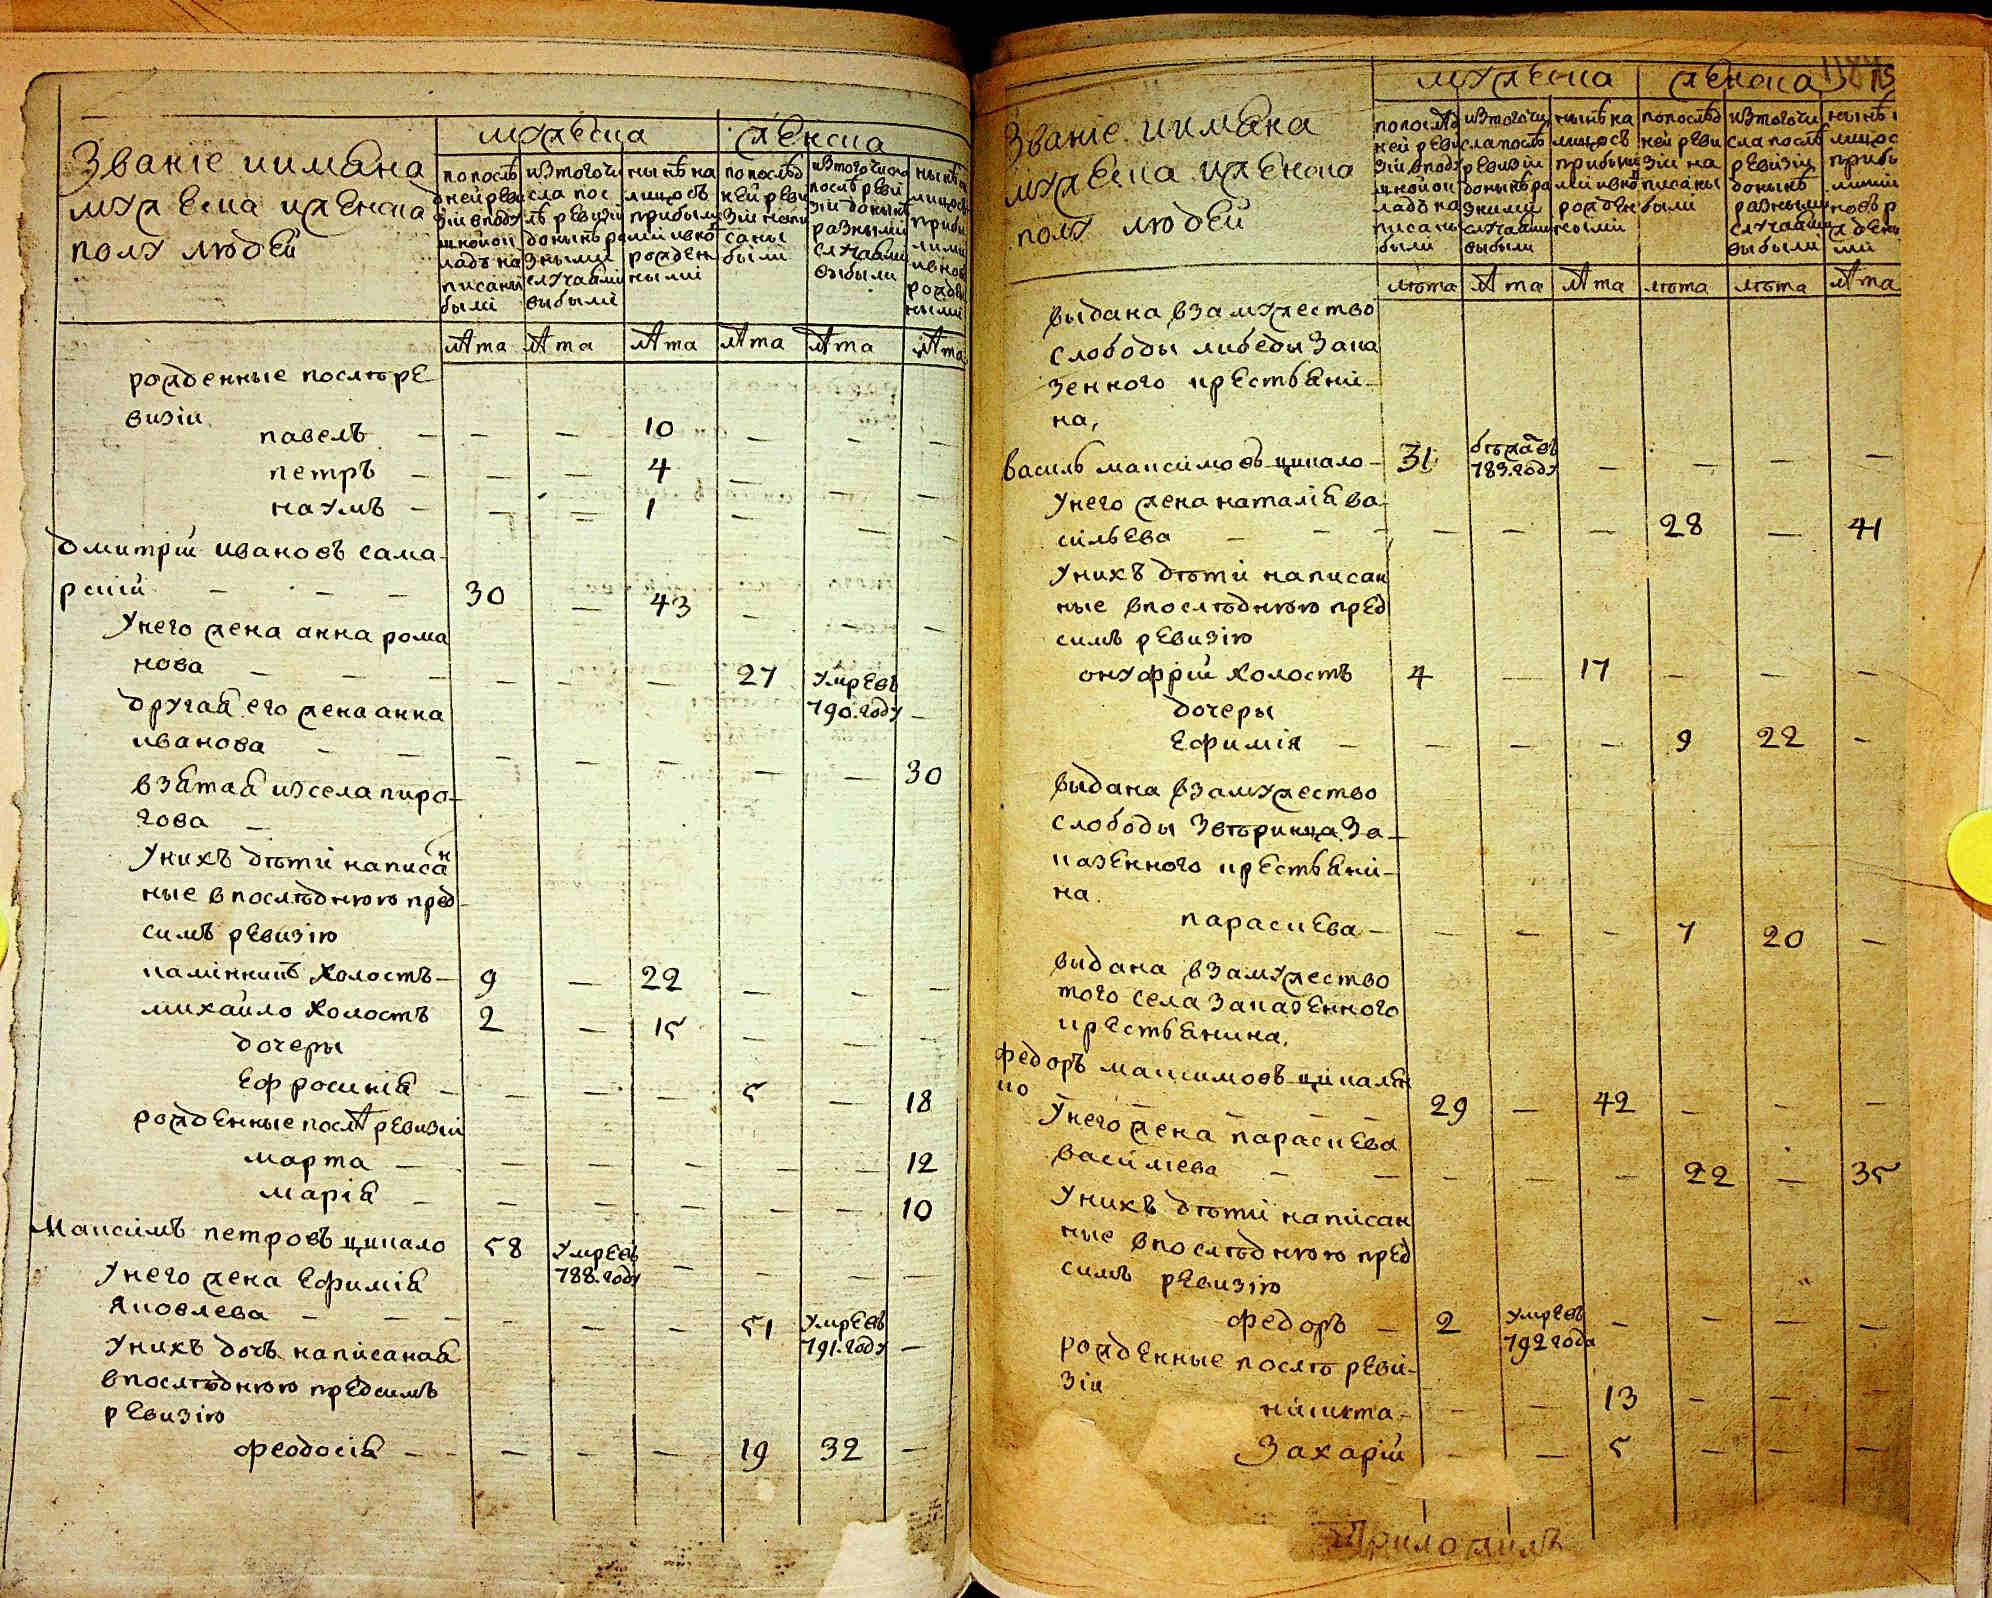 Званіе иимѧна
мужеска иженска
полу людей
мужеска
женска
попослѣ
дней реви
зіи вподу
шной ок
ладъ на
писаны
были
изтого чи
сла пос
лѣ ревизіи
донынѣ ра
зными
случаями
выбыли
нынѣ на
лицо съ
прибылы
ми ивно
рожден
ными
попослѣд
ней реви
зіи напи
саны
были
изтого числа
послѣ реви
зіи донынѣ
разными
случаями
выбыли
нынѣ
налицо съ
прибы
лыми
ивно
рожде
ными
лѣта лѣта лѣта лѣта лѣта лѣта
рожденные послѣ ре
визіи
павелъ — — — 10 — — —
петръ — — — 4 — — —
наумъ — — — 1 — — —
дмитрій ивановъ сама-
рскій — — — 30 — 43 — — —
Унего жена анна рома
нова — — — — — — 27 умре въ
790. году —
другая его жена анна
иванова — — — — — — — 30
взятая изсела пиро-
гова —
Унихъ дѣти написан
ные впослѣднюю пред-
симъ ревизію
калінникъ холостъ — 9 — 22 — — —
михайло холостъ 2 — 15 — — —
дочеры
Ефросинія — — — — 5 — 18
рожденные послѣ ревизіи
марта — — — — — — 12
марія — — — — — — 10
Максимъ петровъ цикало 58 умре въ
788. году — — — —
Унего жена Ефимія
яковлева — — — — — — 51 умре въ
791. году —
Унихъ дочь написаная
впослѣднюю предсимъ
ревизію
феодосія — — — — 19 32 —
Званіе иимѧна
мужеска иженска
полу людей
мужеска
женска
попослѣд
ней реви
зіи вподу
шной ок
ладъ на
писаны
были
изтого чи
сла послѣ
ревизіи
донынѣ ра
зными
случаями
выбыли
нынѣ на
лицо съ
прибылы
ми ивно
рожден
ными
попослѣд
ней реви
зіи на
писаны
были
изтого чи
сла послѣ
ревизіи
донынѣ
разными
случаями
выбыли
нынѣ
лицо с
прибы
лыми
новъ р
жден
ми
лѣта лѣта лѣта лѣта лѣта лѣта
выдана взамужество
слободы либеды зака
зенного крестьяни-
на,
василь максимовъ цикало — 31 бѣжа въ
783. году — — — —
Унего жена наталія ва-
сильева — — — — — — 28 — 41
Унихъ дѣти написан
ные впослѣднюю пред
симъ ревизію
онуфрій холостъ 4 — 17 — — —
дочеры
Ефимія — — — — 9 22 —
выдана взамужество
слободы Звѣринца. За-
казенного крестьяни-
на.
параскева — — — — 7 20 —
выдана взамужество
того села Заказенного
крестьянина,
федоръ максимовъ цикален
ко — — — — — 29 — 42 — — —
Унего жена параскева
василева — — — — — 22 — 35
Унихъ дѣти написан
ные впослѣднюю пред
симъ ревизію
федоръ — 2 умре въ
792 года — — — —
рожденные послѣ реви-
зіи
никита — — — 13 — — —
Захарій — — 5 — — —